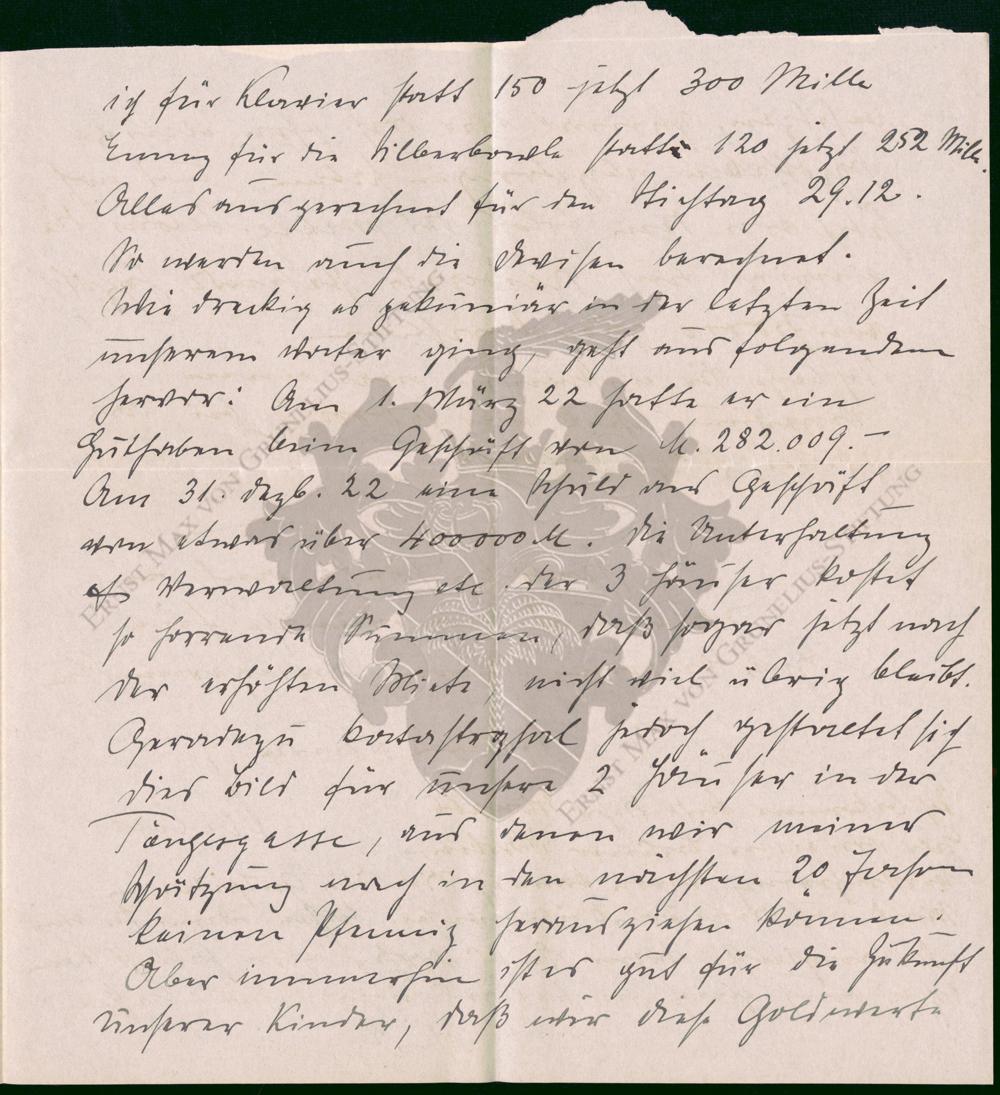 ich für Klavier statt 150 jetzt 300 Mille
Emmy für die Silberbowle statt 120 jetzt 252 Mille.
Alles ausgerechnet für den Stichtag 29.12.
So werden auch die Devisen berechnet.
Wie dreckig es pekuniär in der letzten Zeit
unserem Vater ging, geht aus folgendem
hervor: Am 1. März 22 hatte er ein
Guthaben beim Geschäft von M. 282.009.–
Am 31. Dezb. 22 eine Schuld ans Geschäft
von etwas über 400000 M. Die Unterhaltung
Verwaltung etc. der 3 Häuser kostet
so horrende Summen, daß sogar jetzt nach
der erhöhten Miete, nicht viel übrig bleibt.
Geradezu katastrophal jedoch gestaltet sich
dies Bild für unsere 2 Häuser in der
Töngesgasse, aus denen wir meiner
Schätzung nach in den nächsten 20 Jahren
keinen Pfennig herausziehen können.
Aber immerhin ist es gut für die Zukunft
unserer Kinder, daß wir diese Goldwerte
ERNST MAX VON GRUNELIUS-STIFTUNG
ERNST MAX VON GRUNELIUS-STIFTUNG